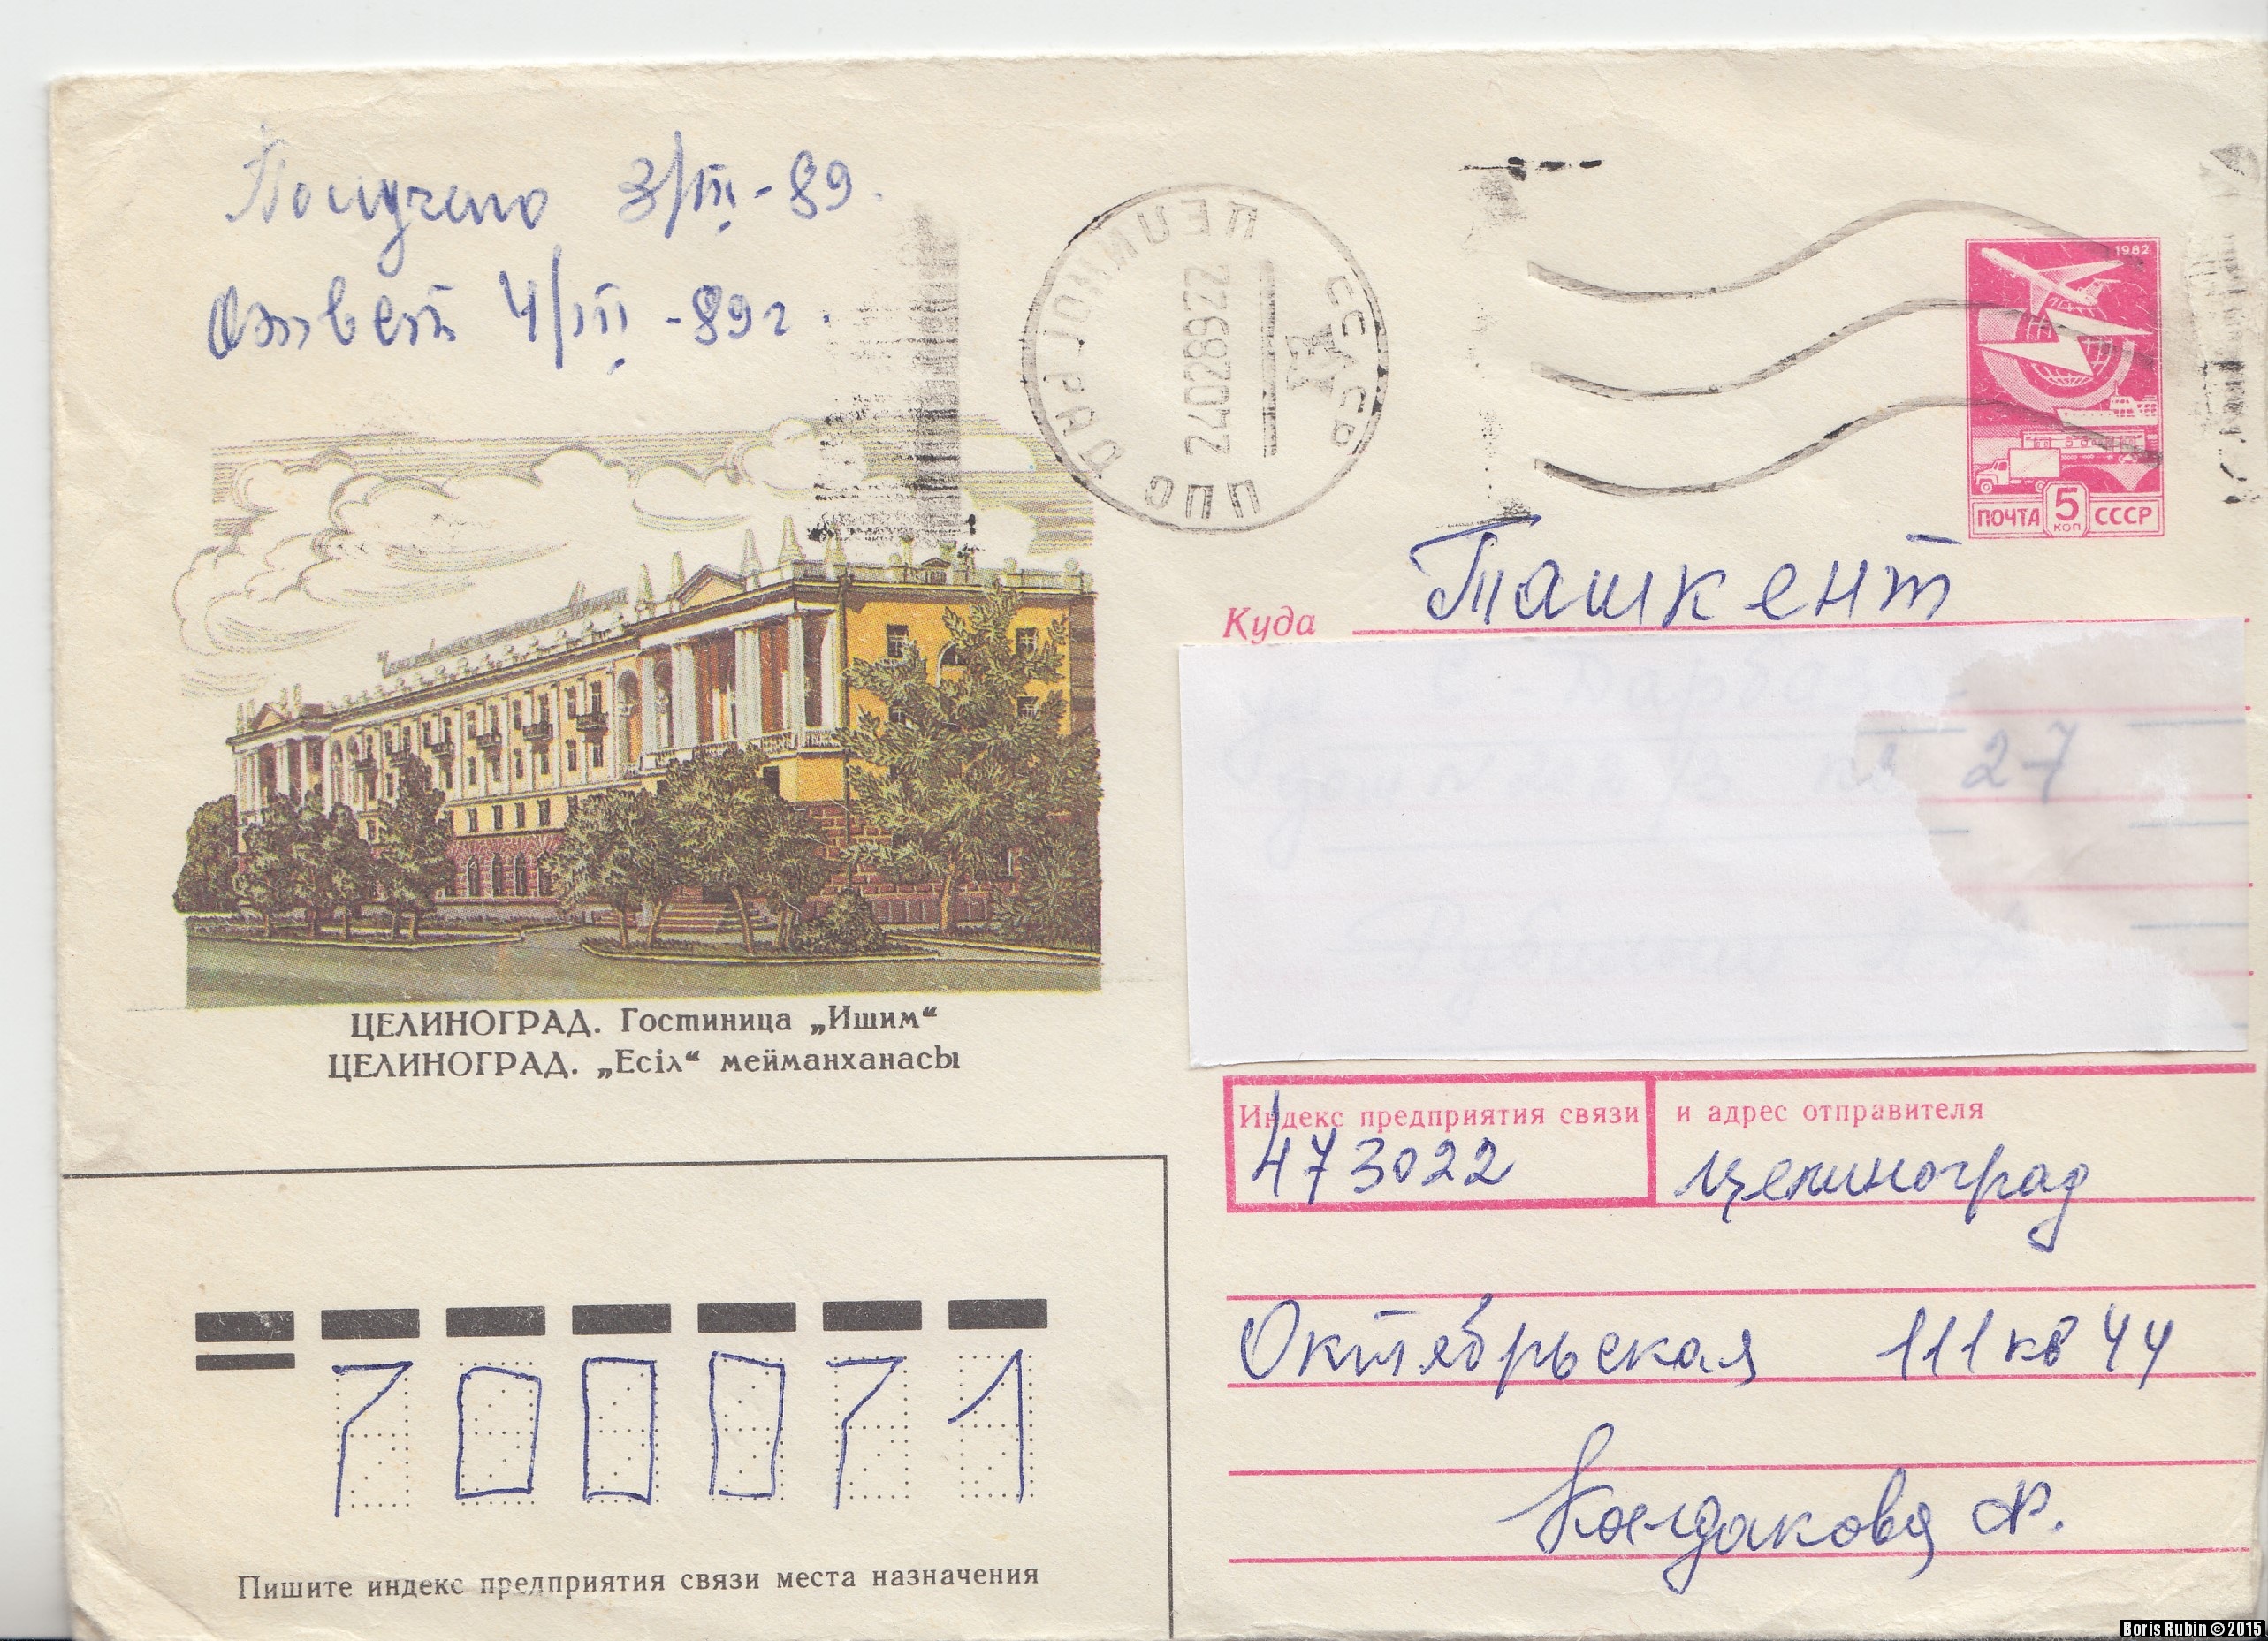 Получено 3/III-89.
Ответ 4/III-89г.
ЦЕЛИНОГРАД
ЦПС
24028922
СССР
1982
ПОЧТА 5 КОП СССР
ЦЕЛИНОГРАД. Гостиница „Ишим“
ЦЕЛИНОГРАД. „Есіл“ мейманханасы
Куда Ташкент
27
Индекс предприятия связи и адрес отправителя
473022 Целиноград
Октябрьская 111 кв 44
700071
Пишите индекс предприятия связи места назначения
Boris Rubin © 2015